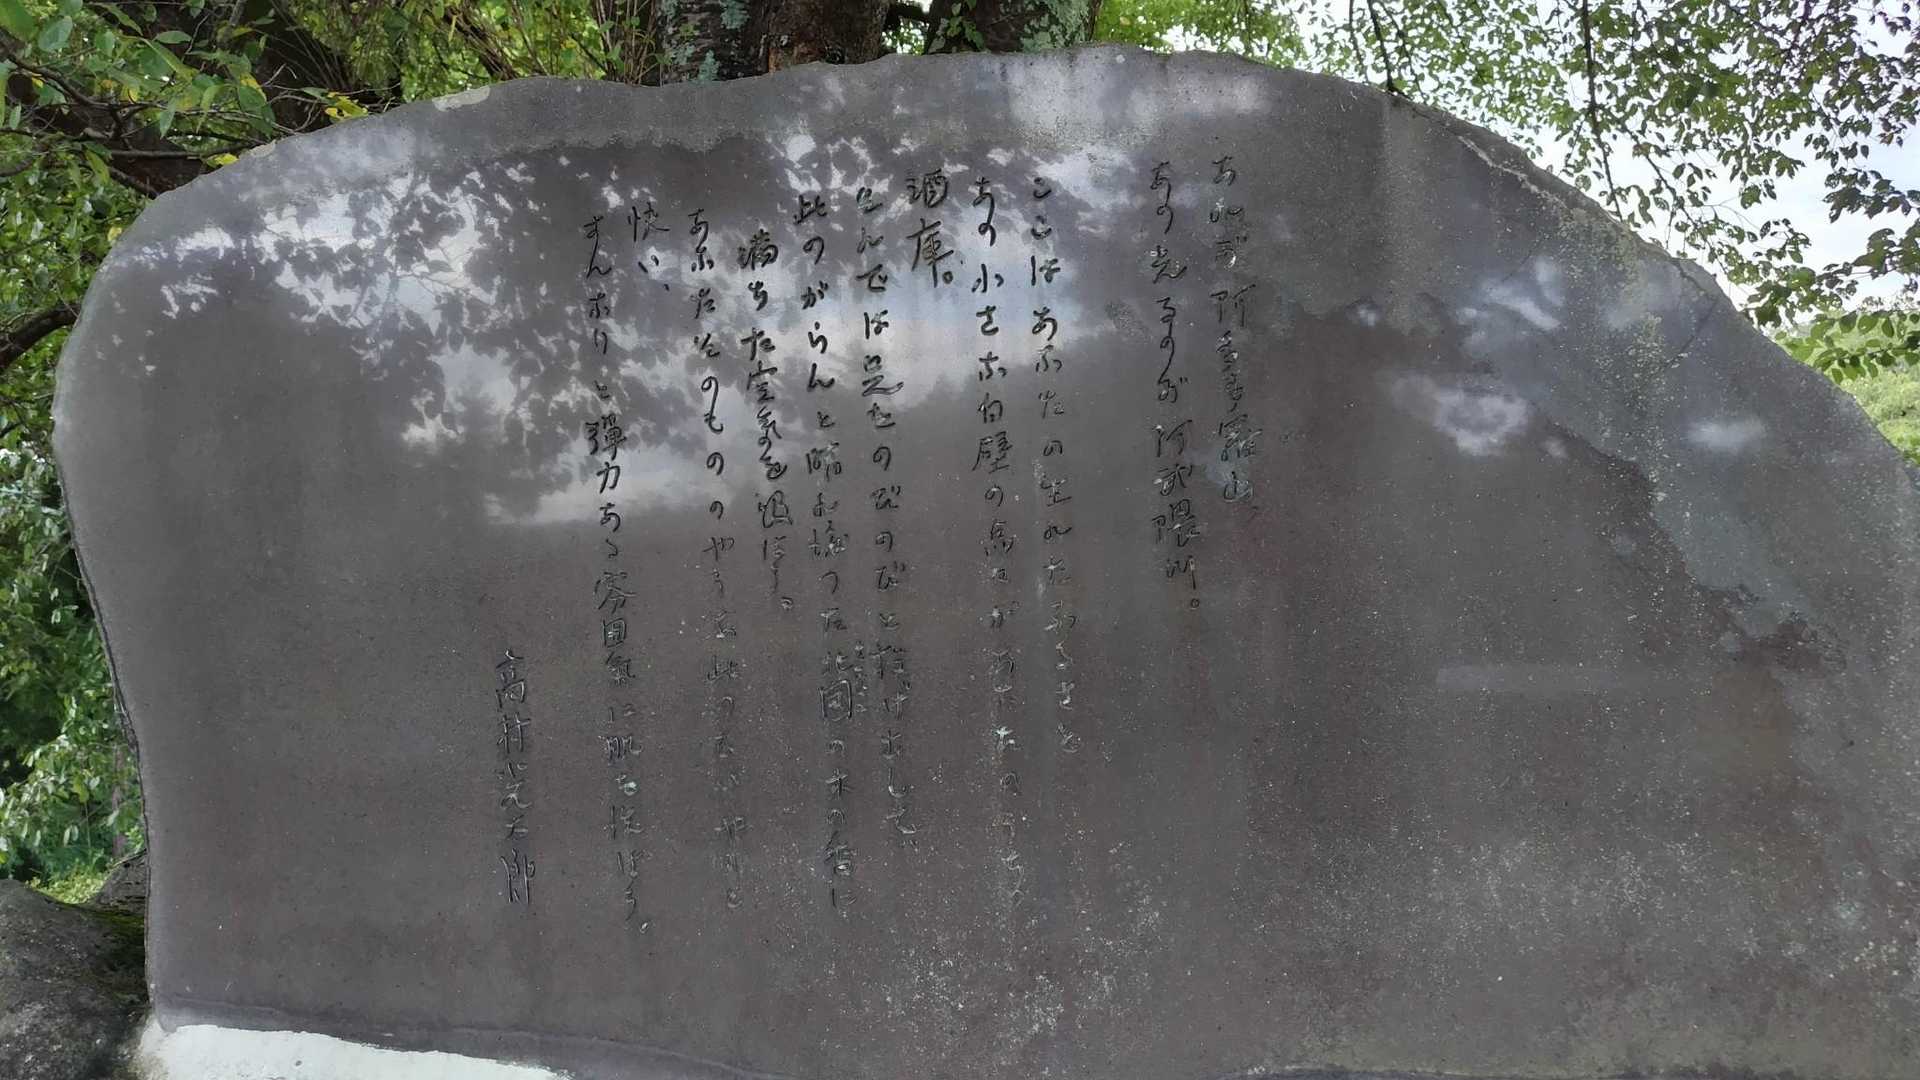 あれが阿多多羅山、
あの光るのが阿武隈川。
ここはあなたの生れたふるさと
あの小さな白壁の点点があなたのうちの
酒庫。
それでは足をのびのびと投げ出して、
此のがらんと晴れ渡った北国の木の香に
満ちた空氣を吸はう。
あなたそのもののやうな此のひいやりと
快い、
すんなりと弾力ある雰囲氣に肌を洗はう。
高村光太郎